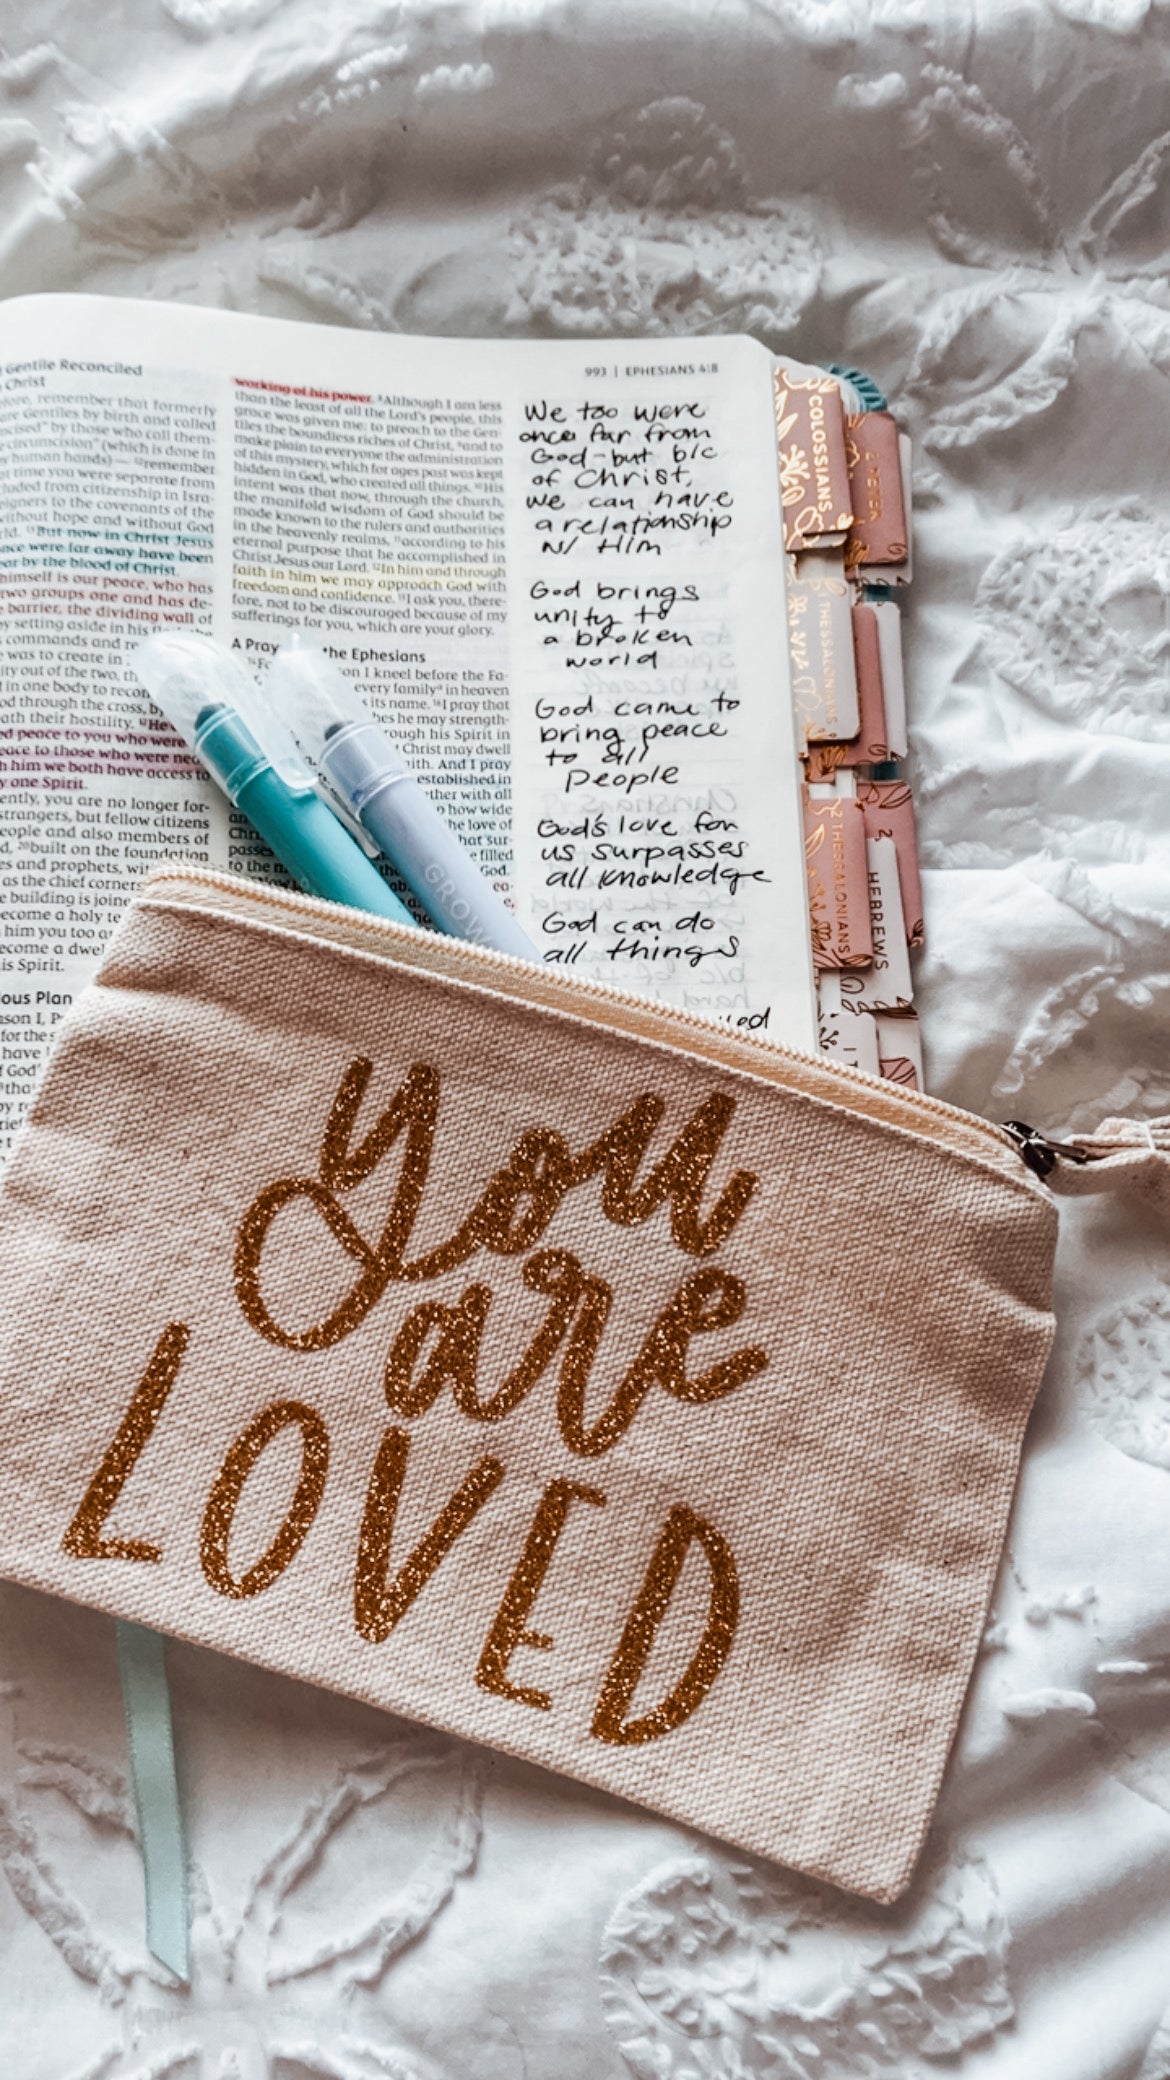 993 | EPHESIANS 4:8
Gentile Reconciled
Christ
remember that formerly
Gentiles by birth and called
by those who call them-
circumcision" (which is done in
human hands) — ¹²remember
time you were separate from
from citizenship in Isra-
to the covenants of the
without hope and without God
¹³But now in Christ Jesus
once were far away have been
by the blood of Christ.
himself is our peace, who has
two groups one and has de-
barrier, the dividing wall of
by setting aside in his
commands and
was to create in
out of the two,
in one body to
through the cross, by
their hostility. ¹⁷He
peace to you who were
peace to those who were
him we both have access to
one Spirit.
you are no longer for-
strangers, but fellow citizens
and also members of
²⁰built on the foundation
and prophets,
as the chief
building is
become a holy
him you too
become a
is Spirit.
Plan
for the
have
God'
working of his power. ⁸Although I am less
than the least of all the Lord's people, this
grace was given me: to preach to the Gen-
tiles the boundless riches of Christ, ⁹and to
make plain to everyone the administration
of this mystery, which for ages past was kept
hidden in God, who created all things. ¹⁰His
intent was that now, through the church,
the manifold wisdom of God should be
made known to the rulers and authorities
in the heavenly realms, ¹¹according to his
eternal purpose that he accomplished in
Christ Jesus our Lord. ¹²In him and through
faith in him we may approach God with
freedom and confidence. ¹³I ask you, there-
fore, not to be discouraged because of my
sufferings for you, which are your glory.
A Pray the Ephesians
I kneel before the Fa-
every family in heaven
its name. ¹⁶I pray that
he may strength-
through his Spirit in
Christ may dwell
And I pray
established in
with all
how wide
love of
that sur-
filled
God.
We too were
once far from
God - but b/c
of Christ,
we can have
a relationship
w/ Him
God brings
unity to
a broken
world
God came to
bring peace
to all
People
God's love for
us surpasses
all knowledge
God can do
all things
COLOSSIANS
2 PETER
1 THESSALONIANS
2 THESSALONIANS
HEBREWS
GROW
You
are
LOVED